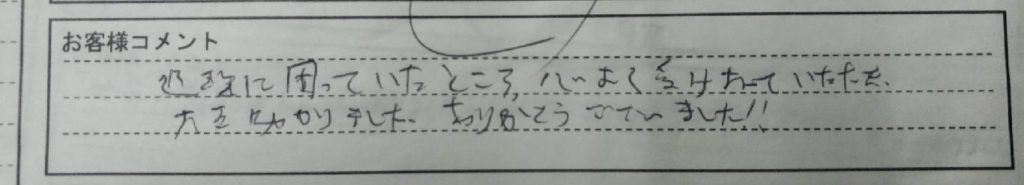 お客様コメント
処理に困っていたところ、心よく受け入れていただき、
大変助かりました。ありがとうございました!!